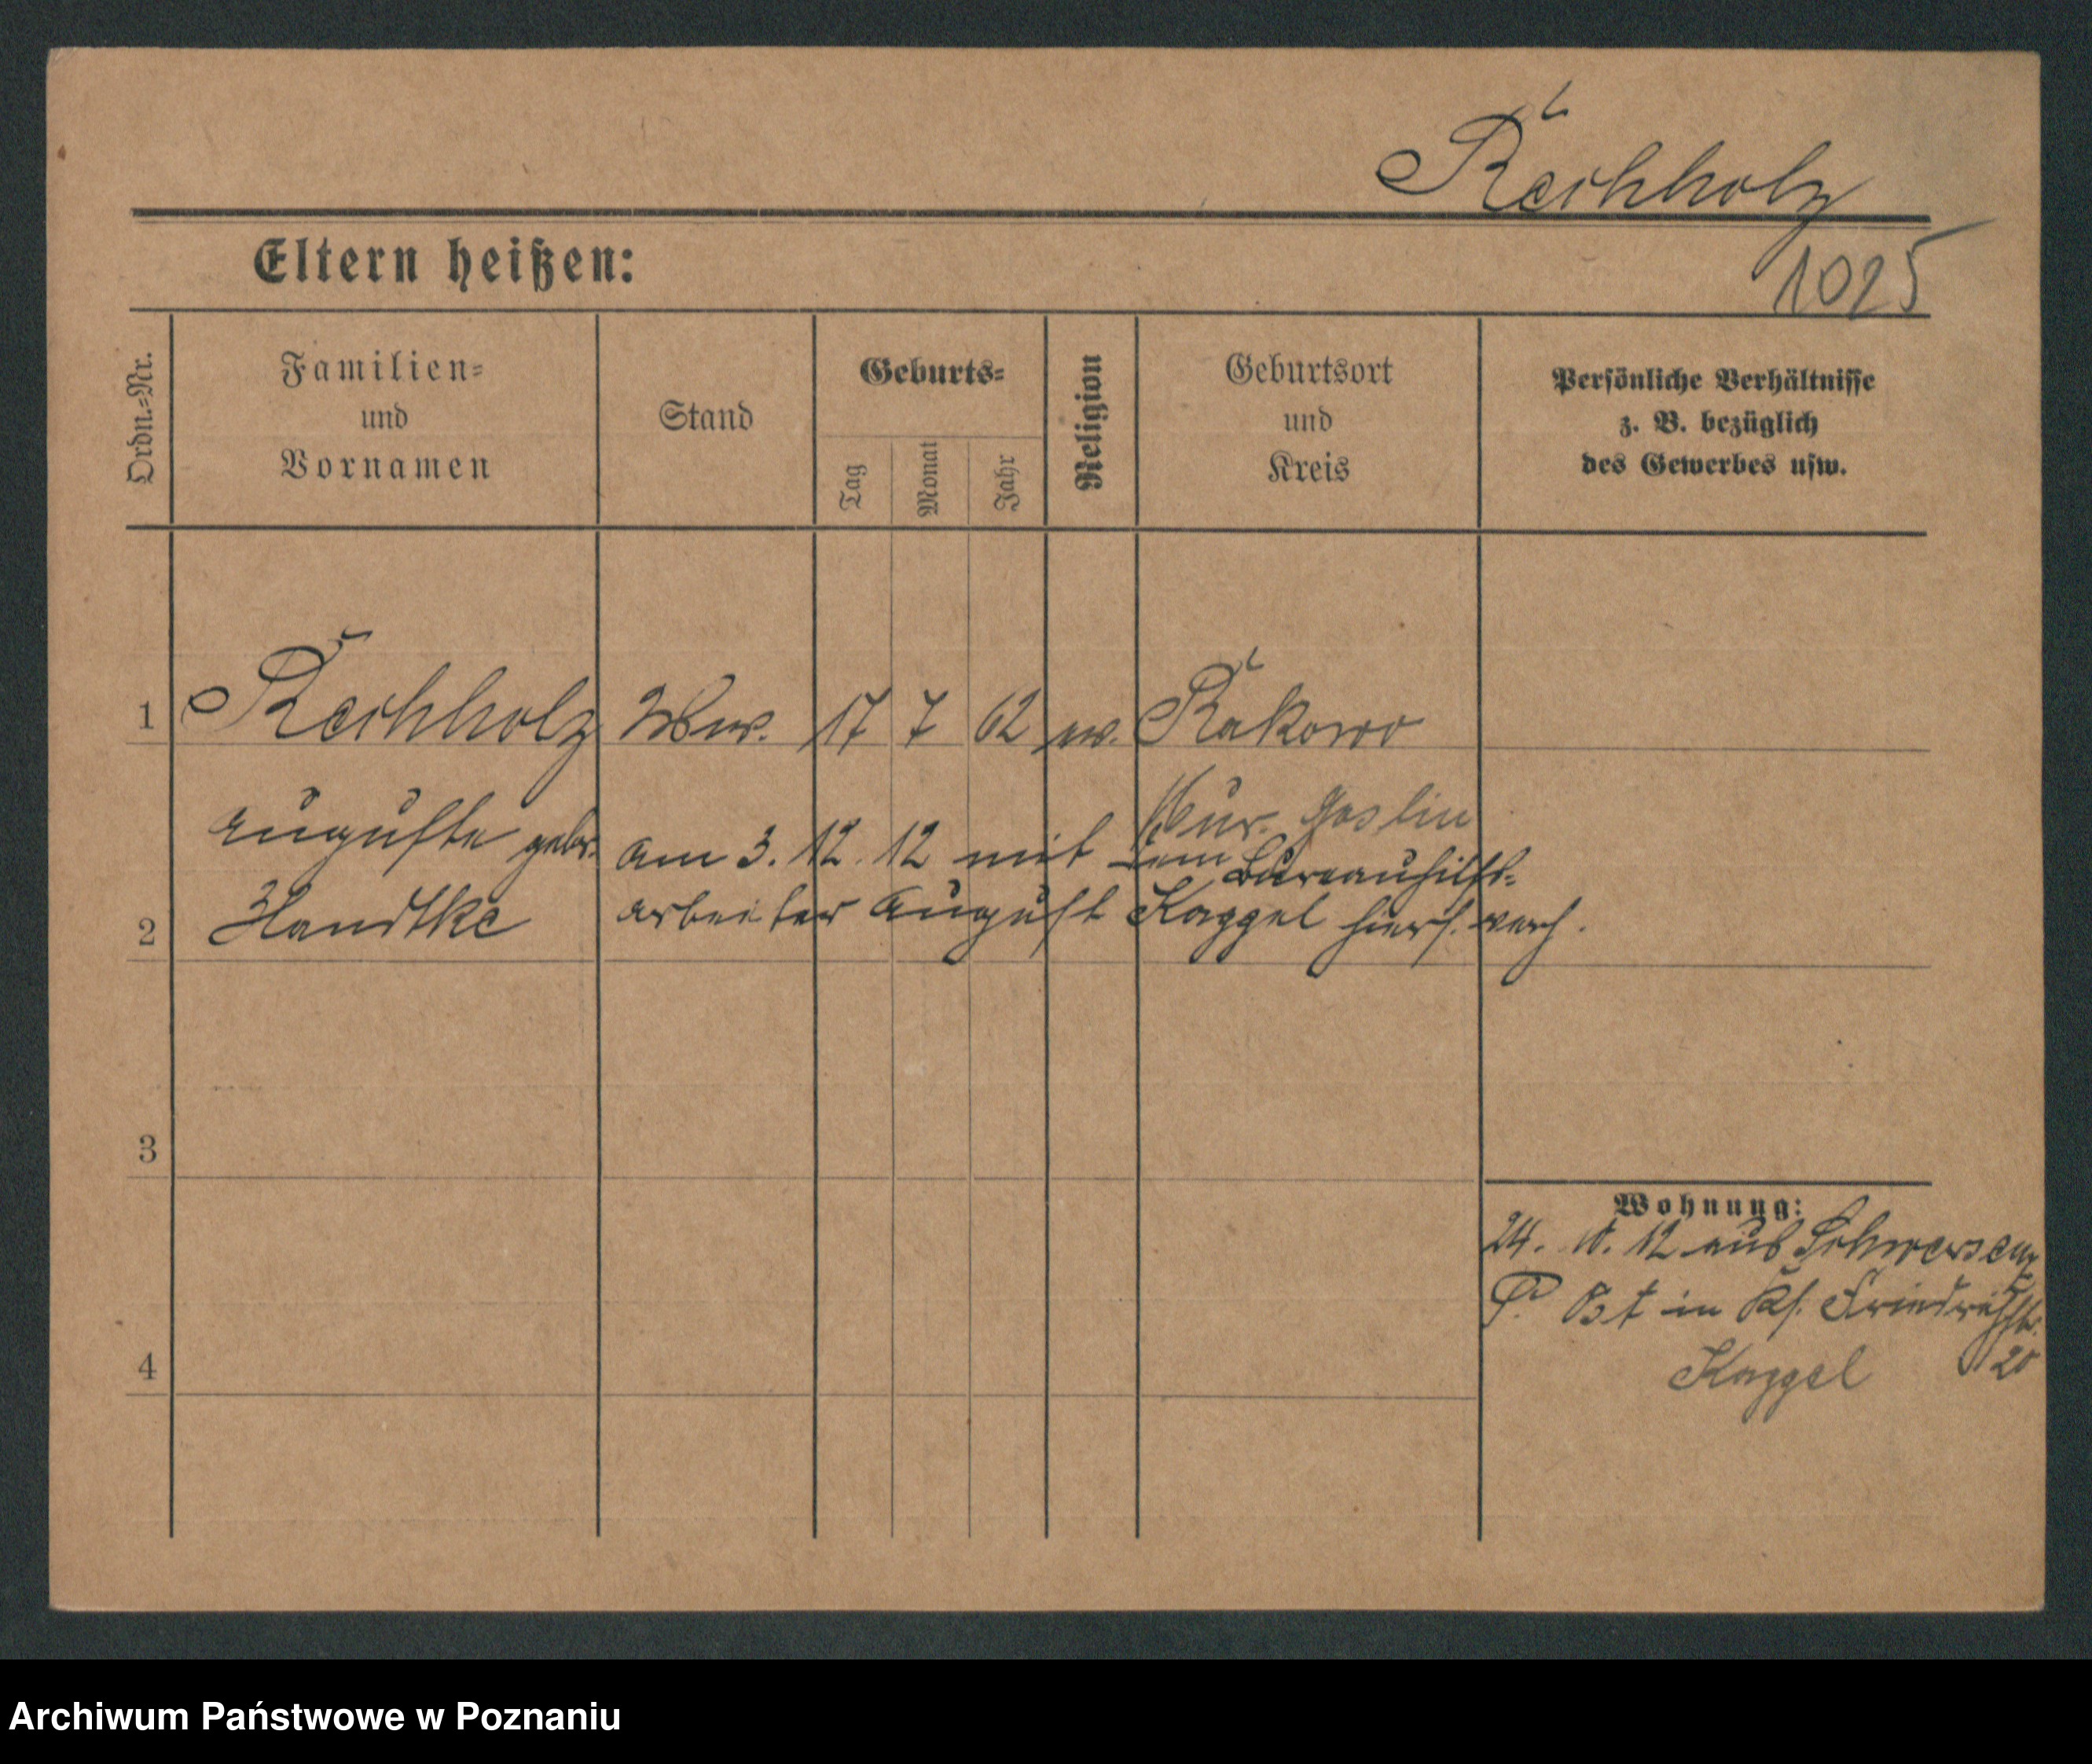 Rechholz
Eltern heißen:
1025
Ordn.-Nr.
Familien-
und
Vornamen
Stand
Geburts-
Tag
Monat
Jahr
Religion
Geburtsort
und
Kreis
Persönliche Verhältnisse
z. B. bezüglich
des Gewerbes usw.
1 Rechholz Ww. 17 7 62 ev. Rakowo
Mur. Goslin
Auguste gebr. am 3. 12. 12 mit dem Bureauhilfs-
2 Handtke arbeiter August Kaggel hiers. verh.
3
Wohnung:
24. 10. 12 aus Schwersenz
P. Ost in Friedrichstr.
20
4 Kaggel
Archiwum Państwowe w Poznaniu